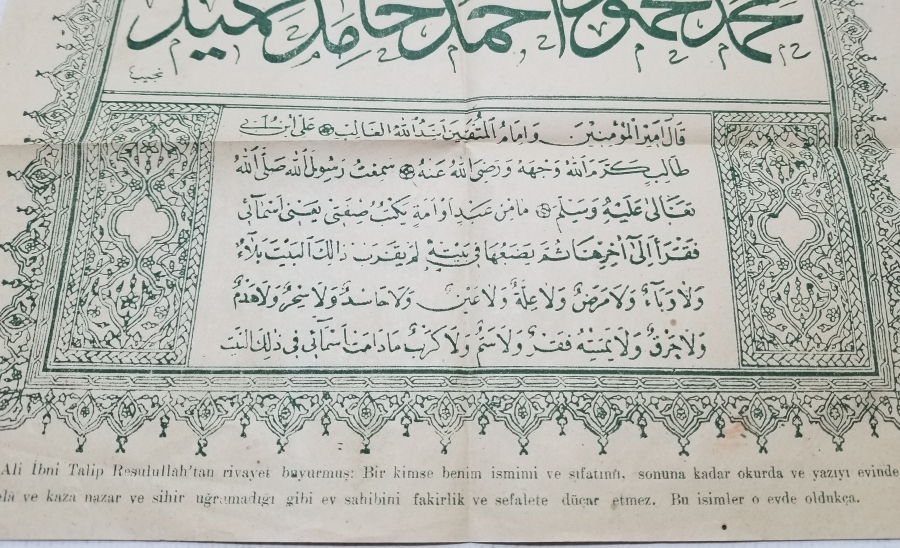 محمد محمود احمد حامد حميد
نجيب
قَالَ اَمِيرُ الْمُؤْمِنِينَ وَاِمَامُ الْمُتَّقِينَ اَسَدُ اللّٰهِ الْغَالِبِ عَلِىُّ ابْنُ اَبِى
طَالِبٍ كَرَّمَ اللّٰهُ وَجْهَهُ وَرَضِىَ اللّٰهُ عَنْهُ سَمِعْتُ رَسُولَ اللّٰهِ صَلَّى اللّٰهُ
تَعَالٰى عَلَيْهِ وَسَلَّمَ مَا مِنْ عَبْدٍ اَوْ اَمَةٍ يَكْتُبُ صِفَتِى يَعْنِى اَسْمَائِى
فَقَرَأَ اِلٰى اٰخِرِهَا ثُمَّ يَضَعُهَا فِى بَيْتِهِ لَمْ يَقْرَبْ ذَالِكَ الْبَيْتَ بَلَاءٌ
وَلَا وَبَاءٌ وَلَا مَرَضٌ وَلَا عِلَّةٌ وَلَا عَيْنٌ وَلَا حَاسِدٌ وَلَا سِحْرٌ وَلَا هَدْمٌ
وَلَا حَرْقٌ وَلَا يَمَسُّهُ فَقْرٌ وَلَا سَمٌّ وَلَا كَرْبٌ مَادَامَتْ اَسْمَائِى فِى ذٰلِكَ الْبَيْتِ
Ali İbni Talip Resulullah'tan rivayet buyurmuş: Bir kimse benim ismimi ve sıfatını, sonuna kadar okurda ve yazıyı evinde
ela ve kaza nazar ve sihir uğramadığı gibi ev sahibini fakirlik ve sefalete düçar etmez. Bu isimler o evde oldukça.